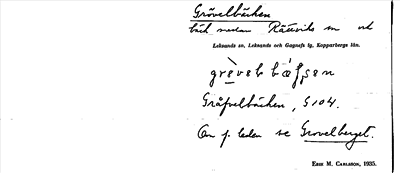 Grövelbäcken
bäck mellan Rättviks sn och
Leksands sn, Leksands och Gagnefs tg, Kopparbergs län.
Gråfvelbäcken, S104.
Om f. leden se Grovelberget.
Erik M. Carlsson, 1935.